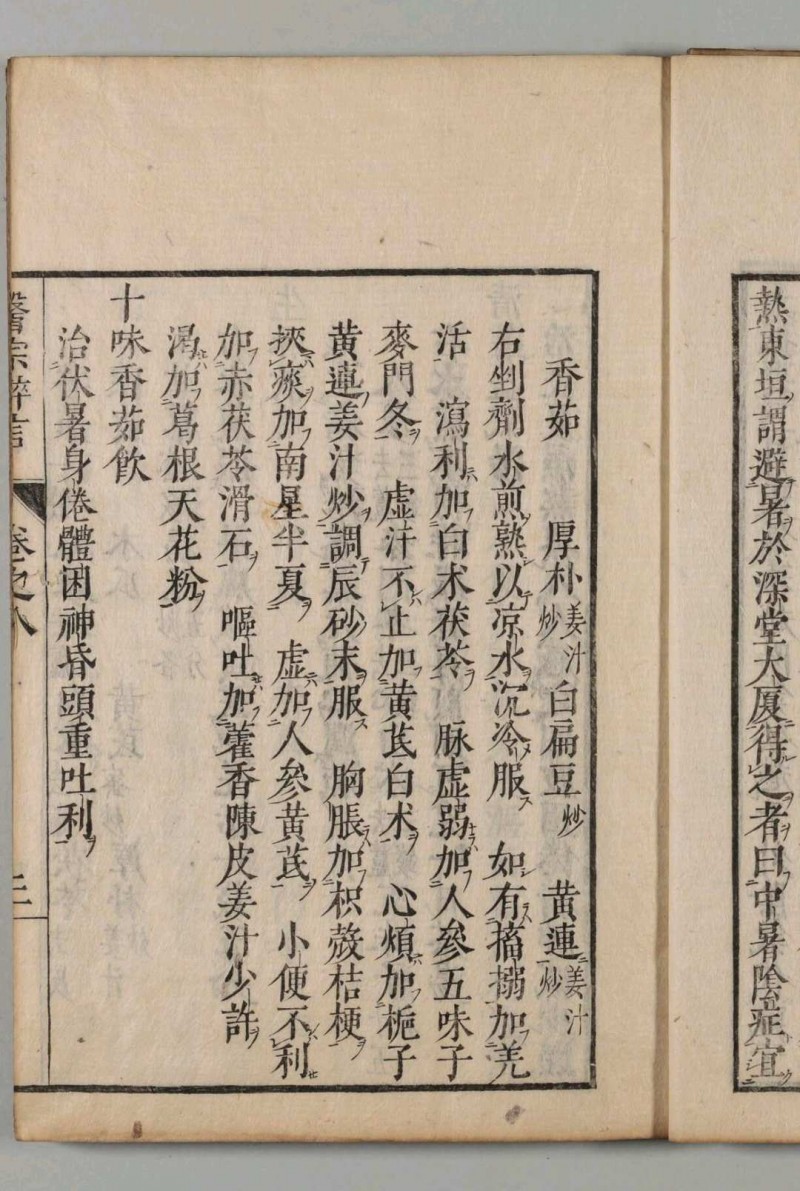 熱東垣謂避暑於深堂大厦得之者曰中暑陰症宜
香茹　厚朴姜汁炒 白扁豆炒　黄連姜汁炒
右剉劑水煎熟以凉水沉冷服　如有搐搦加羌
活　瀉利加白朮茯苓　脉虚弱加人參五味子
麥門冬　虚汗不止加黄芪白朮　心煩加梔子
黄連姜汁炒調辰砂末服　胸脹加枳殼桔梗
挾痰加南星半夏　虚加人參黄芪　小便不利
加赤茯苓滑石　嘔吐加藿香陳皮姜汁少許
渇加葛根天花粉
十味香茹飲
治伏暑身倦體困神昏頭重吐利
卷之八